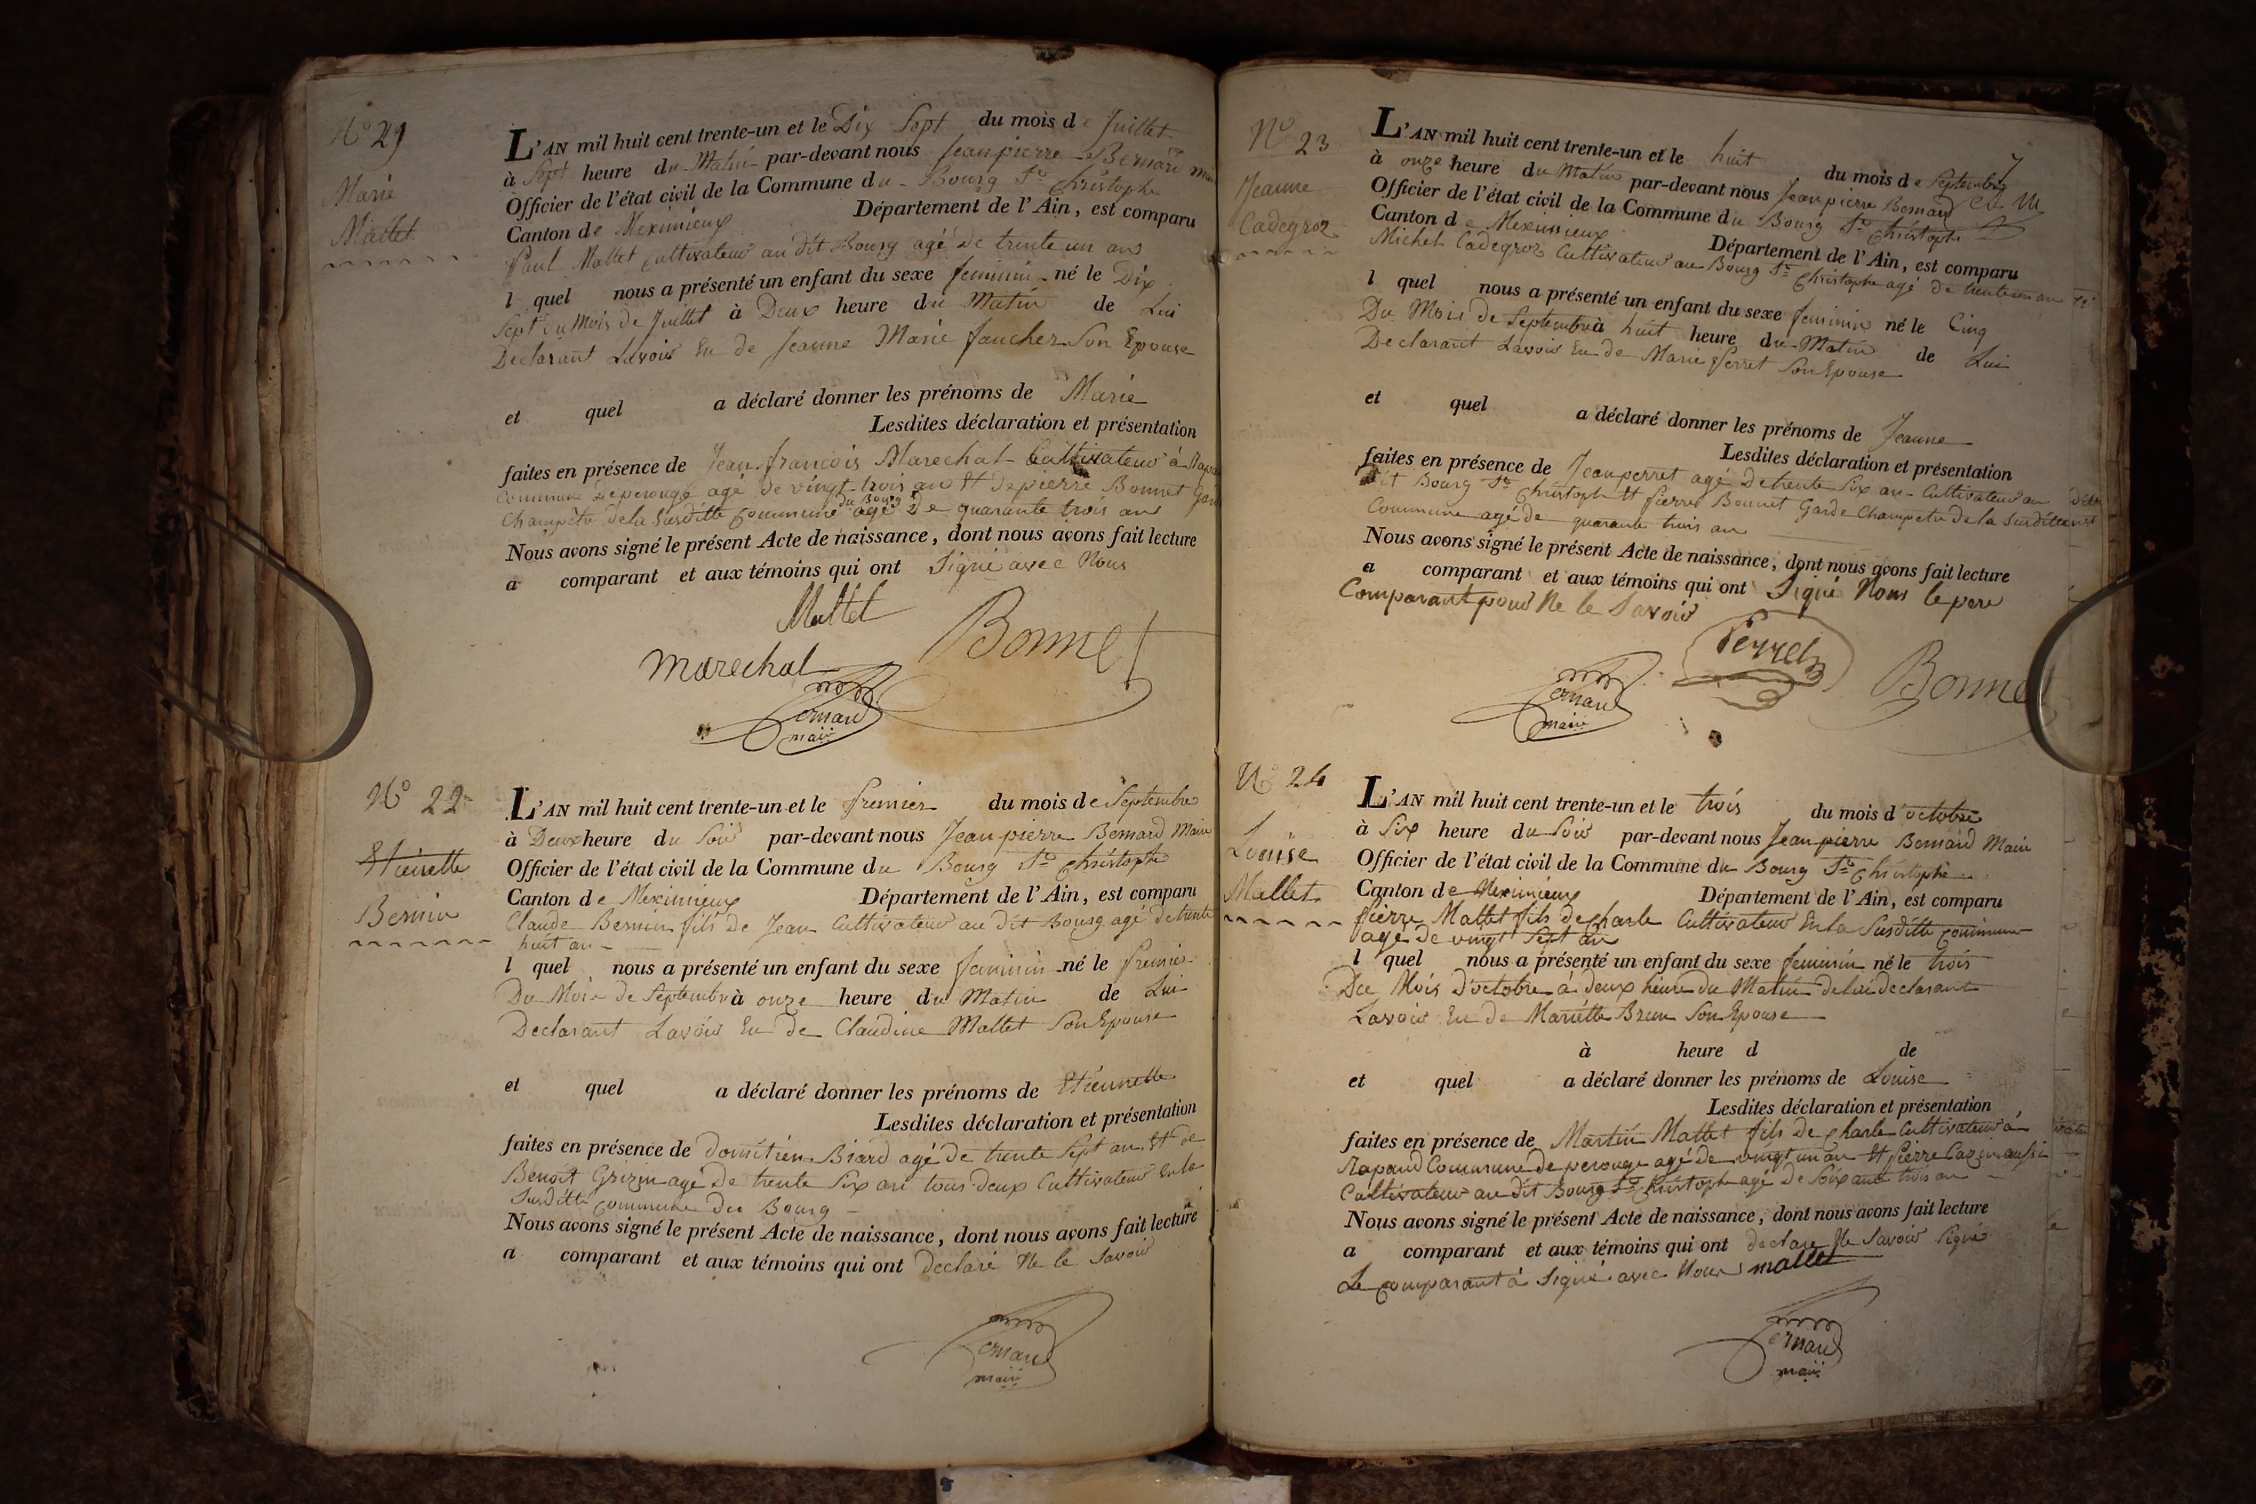 N° 21
Marie
Mallet
L'AN mil huit cent trente-un et le Dix Sept du mois de Juillet
à Sept heure du Matin par-devant nous Jean pierre Bernard
Officier de l'état civil de la Commune du Bourg St Christophe
Canton de Meximieux Département de l'Ain, est comparu
Paul Mallet Cultivateur au dit Bourg agé De trente un ans
l quel nous a présenté un enfant du sexe feminin né le Dix
Sept du Mois de Juillet à Deux heure du Matin de Lui
Declarant Lavoir Eu de Jeanne Marie faucher Son Epouse
et quel a déclaré donner les prénoms de Marie
Lesdites déclaration et présentation
faites en présence de Jean francois Marechal Cultivateur à
Commune De perouge agé de vingt-trois ans Et De pierre Bonnet
du Bourg
Champêtre de la Susditte Commune agé De quarante trois ans
Nous avons signé le présent Acte de naissance, dont nous avons fait lecture
a comparant et aux témoins qui ont Signé avec Nous
Mallet
Bonnet
marechal
Bernard
maire
N° 22
Etiennette
Bernin
L'AN mil huit cent trente-un et le premier du mois de Septembre
à Deux heure du Soir par-devant nous Jean pierre Bernard Maire
Officier de l'état civil de la Commune du Bourg St Christophe
Canton de Meximieux Département de l'Ain, est comparu
Claude Bernin fils De Jean Cultivateur au Dit Bourg agé de trente
huit an
l quel nous a présenté un enfant du sexe feminin né le premier
Du Mois de Septembre à onze heure du Matin de Lui
Declarant Lavoir Eu De Claudine Mallet Son Epouse
et quel a déclaré donner les prénoms de Etiennette
Lesdites déclaration et présentation
faites en présence de Domitien Biard agé De trente Sept an Et de
Benoit Grizin agé De trente Six an tous deux Cultivateur En la
Susditte Commune du Bourg
Nous avons signé le présent Acte de naissance, dont nous avons fait lecture
a comparant et aux témoins qui ont declaré Ne le Savoir
Bernard
maire
N° 23
Jeanne
Cadegroz
L'AN mil huit cent trente-un et le huit du mois de Septembre
à onze heure du Matin par-devant nous Jean pierre Bernard
Officier de l'état civil de la Commune du Bourg St Christophe
Canton de Meximieux Département de l'Ain, est comparu
Michel Cadegroz Cultivateur au Bourg St Christophe agé de trente un an
l quel nous a présenté un enfant du sexe feminin né le Cinq
Du Mois De Septembre à huit heure du Matin de Lui
Declarant Lavoir Eu de Marie Perret Son Epouse
et quel a déclaré donner les prénoms de Jeanne
Lesdites déclaration et présentation
faites en présence de Jean perret agé De trente Six an Cultivateur au
Dit Bourg St Christophe Et pierre Bonnet Garde Champetre De la Susditte
Commune agé de quarante trois an
Nous avons signé le présent Acte de naissance, dont nous avons fait lecture
a comparant et aux témoins qui ont Signé Nous le pere
Comparant pour Ne le Savoir
Perret
Bonnet
Bernard
maire
N° 24
Louise
Mallet
L'AN mil huit cent trente-un et le trois du mois d'octobre
à Six heure du Soir par-devant nous Jean pierre Bernard Maire
Officier de l'état civil de la Commune du Bourg St Christophe
Canton de Meximieux Département de l'Ain, est comparu
pierre Mallet fils de charle Cultivateur En la Susditte Commune
agé de vingt Sept an
l quel nous a présenté un enfant du sexe feminin né le trois
Du Mois D'octobre à deux heure Du Matin de Lui declarant
Lavoir Eu de Mariette Brun Son Epouse
à heure d de
et quel a déclaré donner les prénoms de Louise
Lesdites déclaration et présentation
faites en présence de Martin Mallet fils De Charle Cultivateur à
Rapand Commune De perouge agé de vingt un an Et pierre aussi
Cultivateur au dit Bourg St Christophe agé De Soixante trois an
Nous avons signé le présent Acte de naissance, dont nous avons fait lecture
a comparant et aux témoins qui ont declare Ne Savoir Signé
Le comparant à Signé avec Nous mallet
Bernard
maire